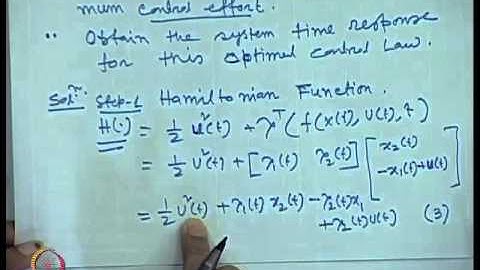 mum control effort.
.. Obtain the system time response
for this optimal control Law.
Sol^n: Step-1 Hamiltonian Function.
H(·) = 1/2 u²(t) + λᵀ(f(x(t), u(t), t)
= 1/2 u²(t) + [λ₁(t) λ₂(t)] [x₂(t) -x₁(t)+u(t)]
= 1/2 u²(t) + λ₁(t) x₂(t) - λ₂(t)x₁
+ λ₂(t)u(t) (3)